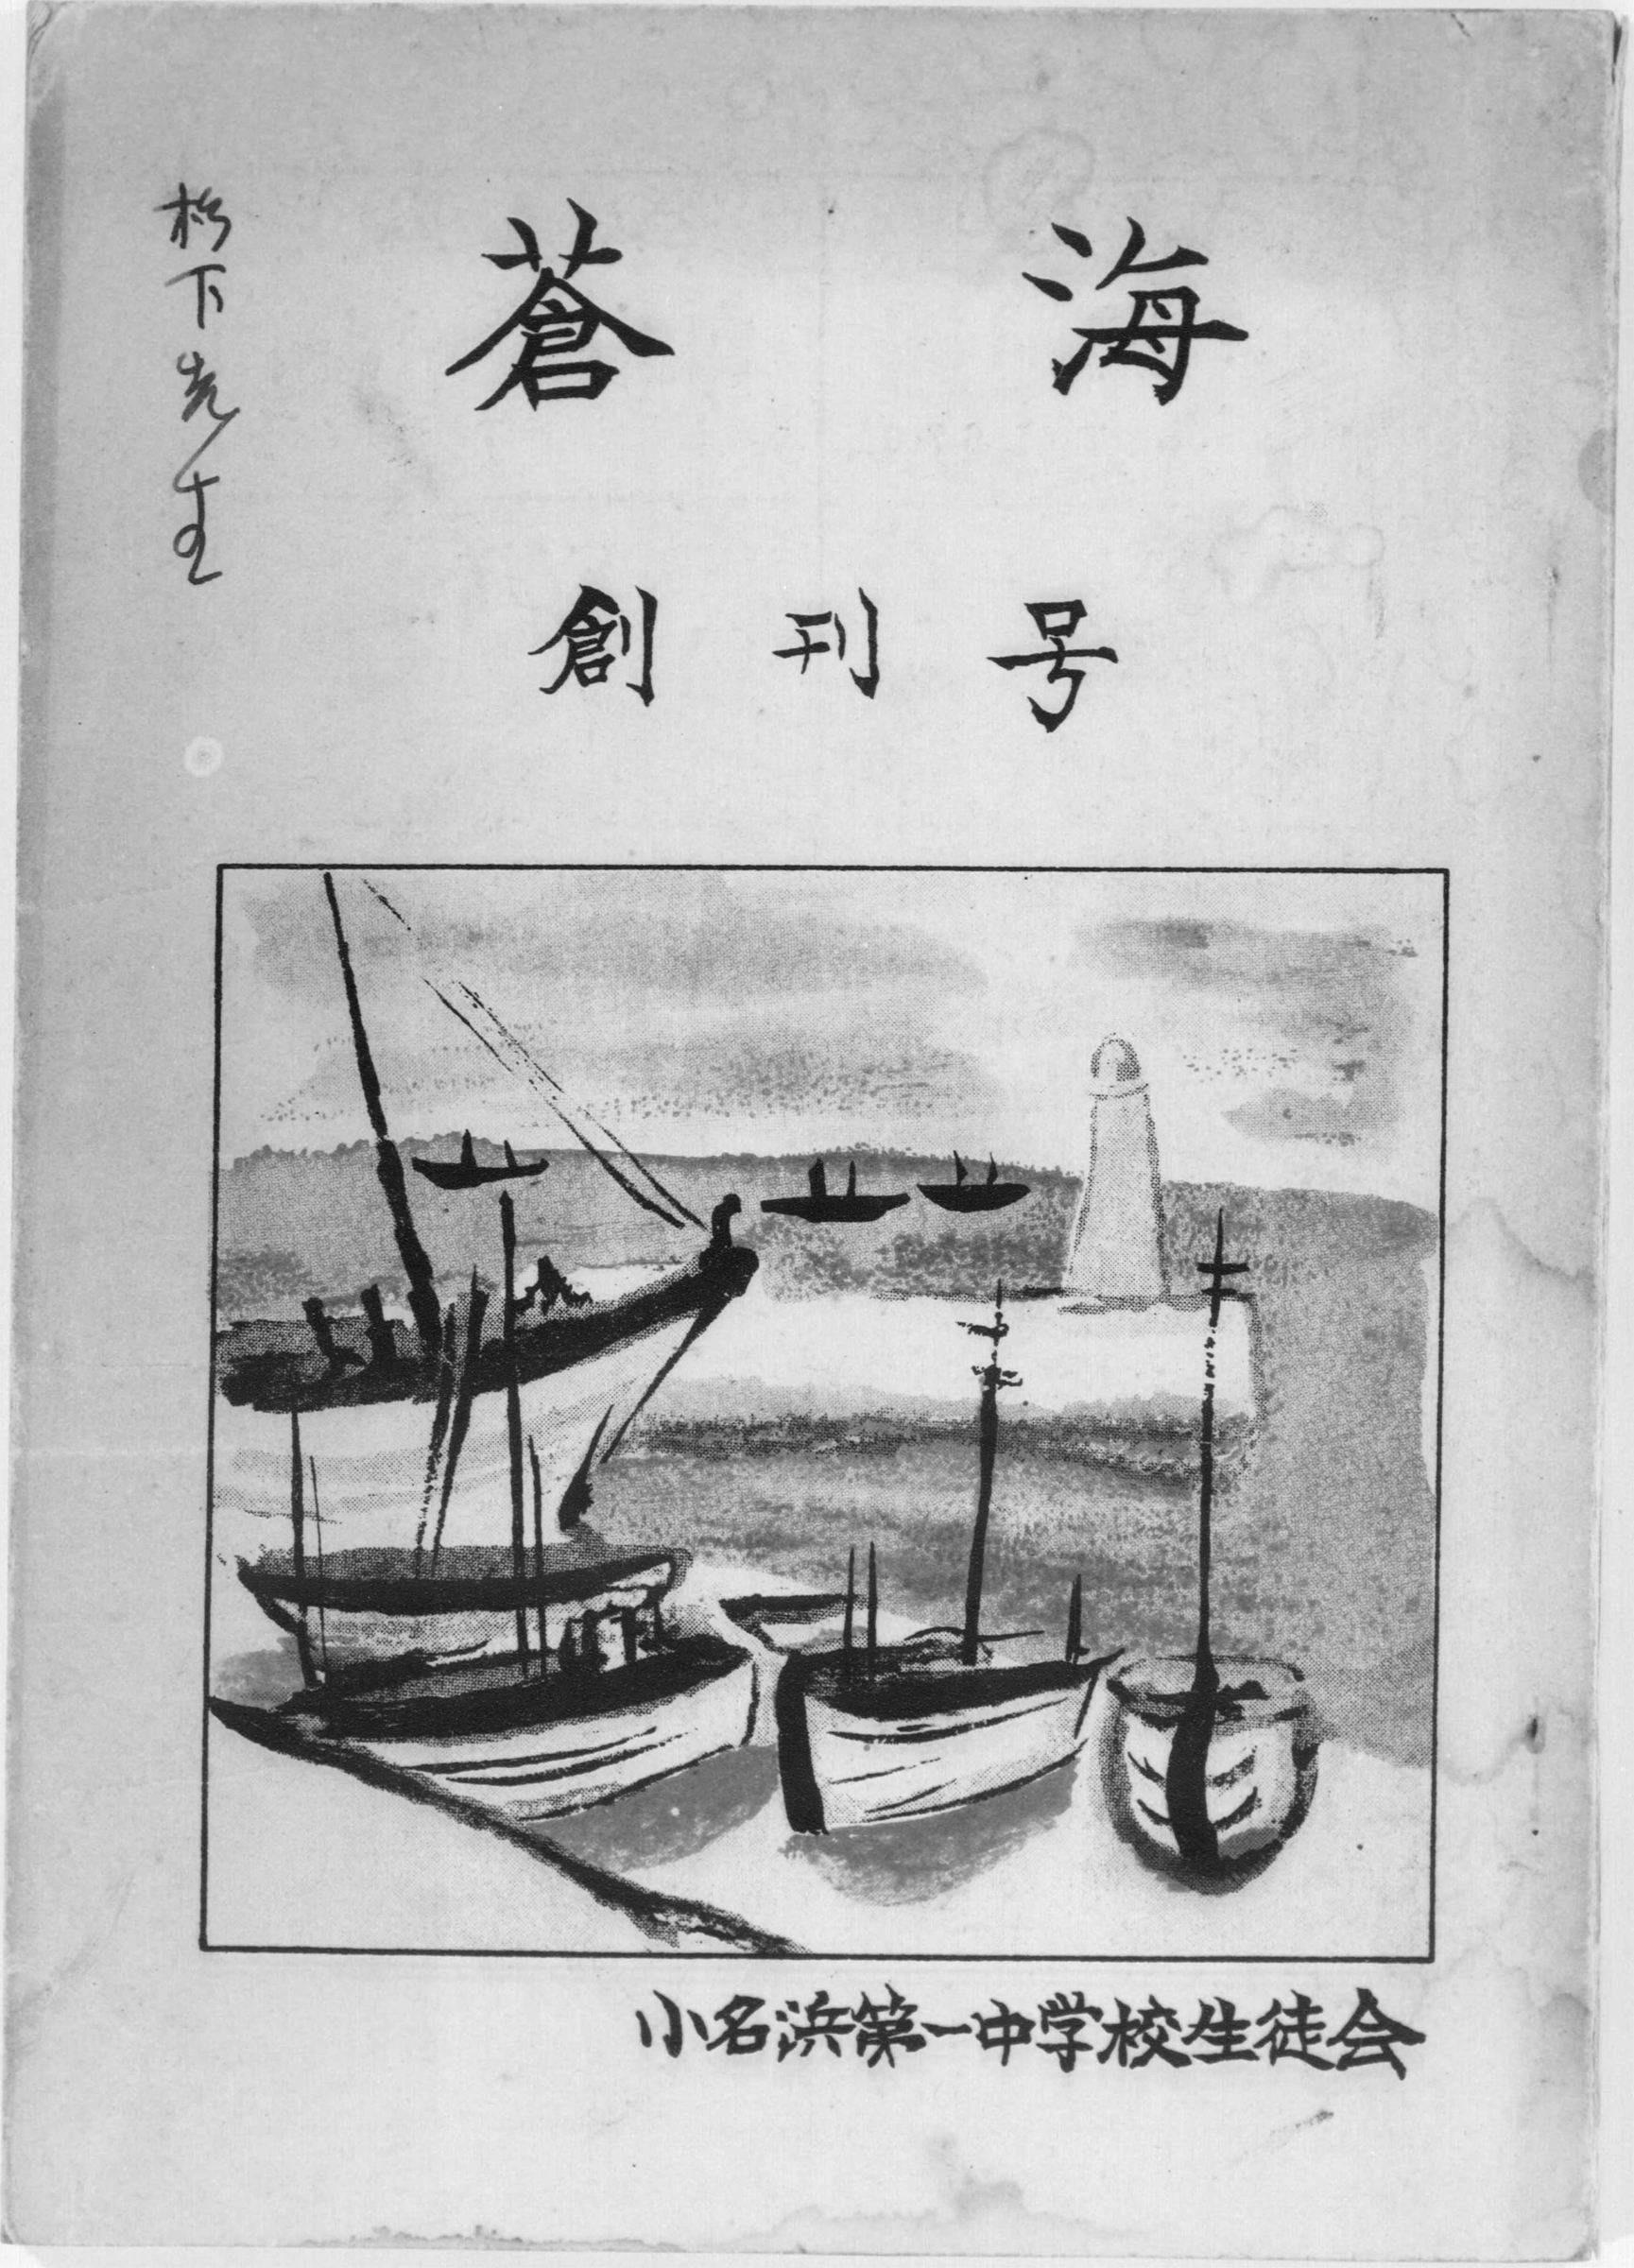 蒼海
創刊号
下先生
小名浜第一中学校生徒会